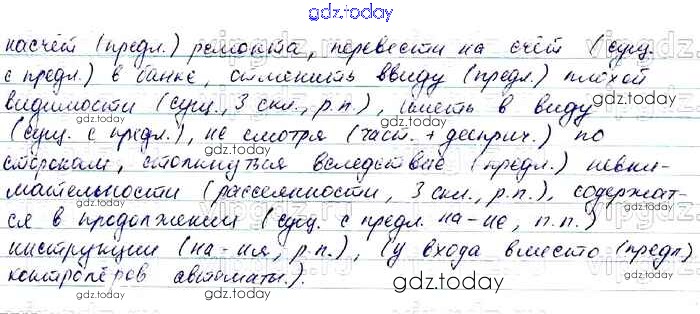 gdz.today
насчёт (предл.) ремонта, перевести на счёт (сущ.
с предл.) в банке, отменить ввиду (предл.) плохой
видимости (сущ., 3 скл., р.п.), иметь в виду
(сущ. с предл.), не смотря (част. + дееприч.) по
сторонам, столкнуться вследствие (предл.) невни-
мательности (рассеянности, 3 скл., р.п.), содержат-
ся в продолжении (сущ. с предл. на -ие, п.п.)
инструкции (на -ия, р.п.), (у входа вместо (предл.)
контролёров автоматы.).
gdz.today